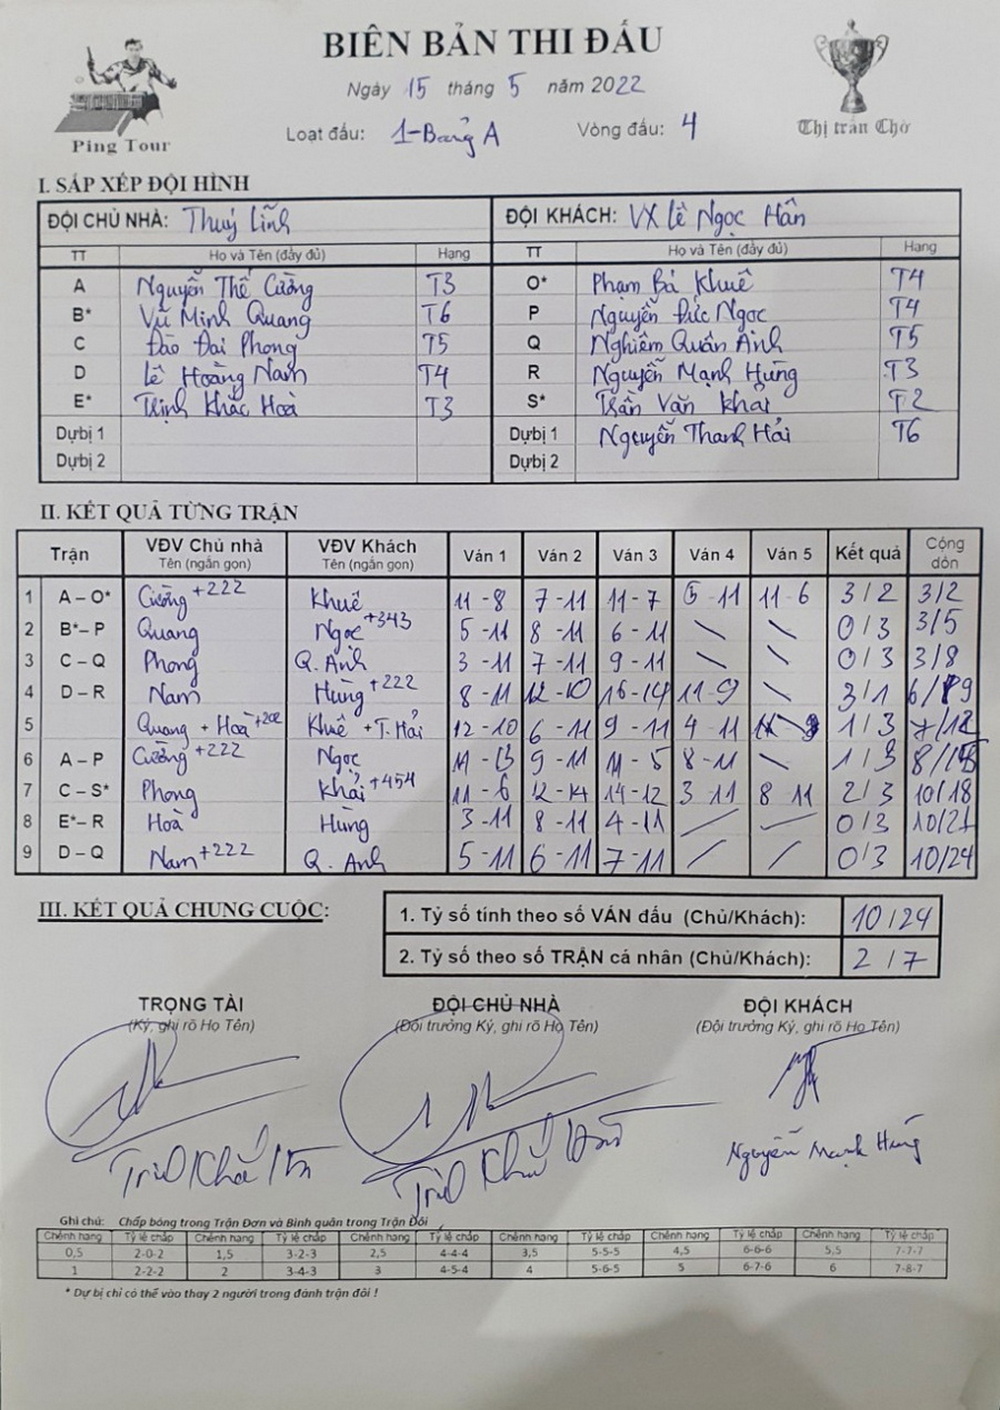 BIÊN BẢN THI ĐẤU
Ngày 15 tháng 5 năm 2022
Loạt đấu: 1-Bảng A Vòng đấu: 4
Ping Tour
Thị trấn Chờ
I. SẮP XẾP ĐỘI HÌNH
ĐỘI CHỦ NHÀ: Thuỷ Lĩnh ĐỘI KHÁCH: VX Lê Ngọc Hân
TT Họ và Tên (đầy đủ) Hạng TT Họ và Tên (đầy đủ) Hạng
A Nguyễn Thế Cường T3 O* Phạm Bá Khuê T4
B* Vũ Minh Quang T6 P Nguyễn Đức Ngọc T4
C Đào Đại Phong T5 Q Nghiêm Quân Anh T5
D Lê Hoàng Nam T4 R Nguyễn Mạnh Hùng T3
E* Trịnh Khắc Hoà T3 S* Trần Văn Khải T2
Dự bị 1 Dự bị 1 Nguyễn Thanh Hải T6
Dự bị 2 Dự bị 2
II. KẾT QUẢ TỪNG TRẬN
Trận VĐV Chủ nhà Tên (ngắn gọn) VĐV Khách Tên (ngắn gọn) Ván 1 Ván 2 Ván 3 Ván 4 Ván 5 Kết quả Cộng dồn
1 A – O* Cường +222 Khuê 11 - 8 7 - 11 11 - 7 5 - 11 11 - 6 3 / 2 3/2
2 B* – P Quang Ngọc +343 5 - 11 8 - 11 6 - 11 \ \ 0 / 3 3/5
3 C – Q Phong Q. Anh 3 - 11 7 - 11 9 - 11 \ \ 0 / 3 3/8
4 D – R Nam Hùng +222 8 - 11 12 - 10 16 - 14 11 - 9 \ 3 / 1 6/9
5 Quang + Hoà +202 Khuê + T. Hải 12 - 10 6 - 11 9 - 11 4 - 11 \ 1 / 3 7/12
6 A – P Cường +222 Ngọc 11 - 13 9 - 11 11 - 5 8 - 11 \ 1 / 3 8/15
7 C – S* Phong Khải +454 11 - 6 12 - 14 14 - 12 3 - 11 8 - 11 2 / 3 10/18
8 E* – R Hoà Hùng 3 - 11 8 - 11 4 - 11 / / 0 / 3 10/21
9 D – Q Nam +222 Q. Anh 5 - 11 6 - 11 7 - 11 / / 0 / 3 10/24
III. KẾT QUẢ CHUNG CUỘC:
1. Tỷ số tính theo số VÁN đấu (Chủ/Khách): 10 / 24
2. Tỷ số theo số TRẬN cá nhân (Chủ/Khách): 2 / 7
TRỌNG TÀI ĐỘI CHỦ NHÀ ĐỘI KHÁCH
(Ký, ghi rõ Họ Tên) (Đội trưởng Ký, ghi rõ Họ Tên) (Đội trưởng Ký, ghi rõ Họ Tên)
Nguyễn Mạnh Hùng
Ghi chú: Chấp bóng trong Trận Đơn và Bình quân trong Trận Đôi
Chênh hạng Tỷ lệ chấp Chênh hạng Tỷ lệ chấp Chênh hạng Tỷ lệ chấp Chênh hạng Tỷ lệ chấp Chênh hạng Tỷ lệ chấp Chênh hạng Tỷ lệ chấp
0,5 2-0-2 1,5 3-2-3 2,5 4-4-4 3,5 5-5-5 4,5 6-6-6 5,5 7-7-7
1 2-2-2 2 3-4-3 3 4-5-4 4 5-6-5 5 6-7-6 6 7-8-7
* Dự bị chỉ có thể vào thay 2 người trong đánh trận đôi !